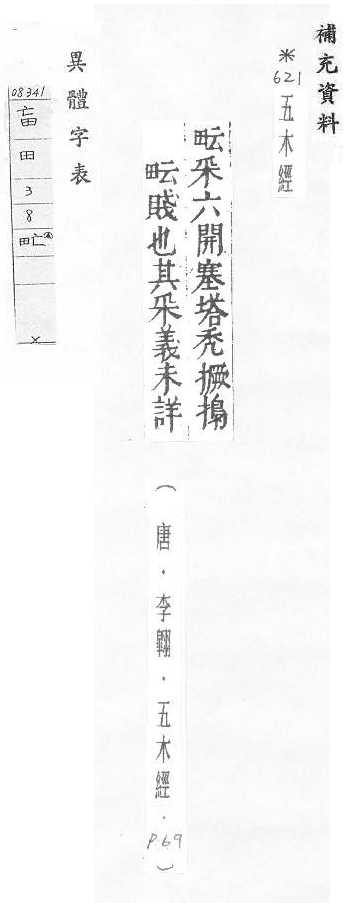 補充資料
※621 五木經
甿采六開塞塔禿撅搗
甿賤也其采義未詳
(唐.李翱.五木經.P.69)
異體字表
08341
田
3
8
甿
×